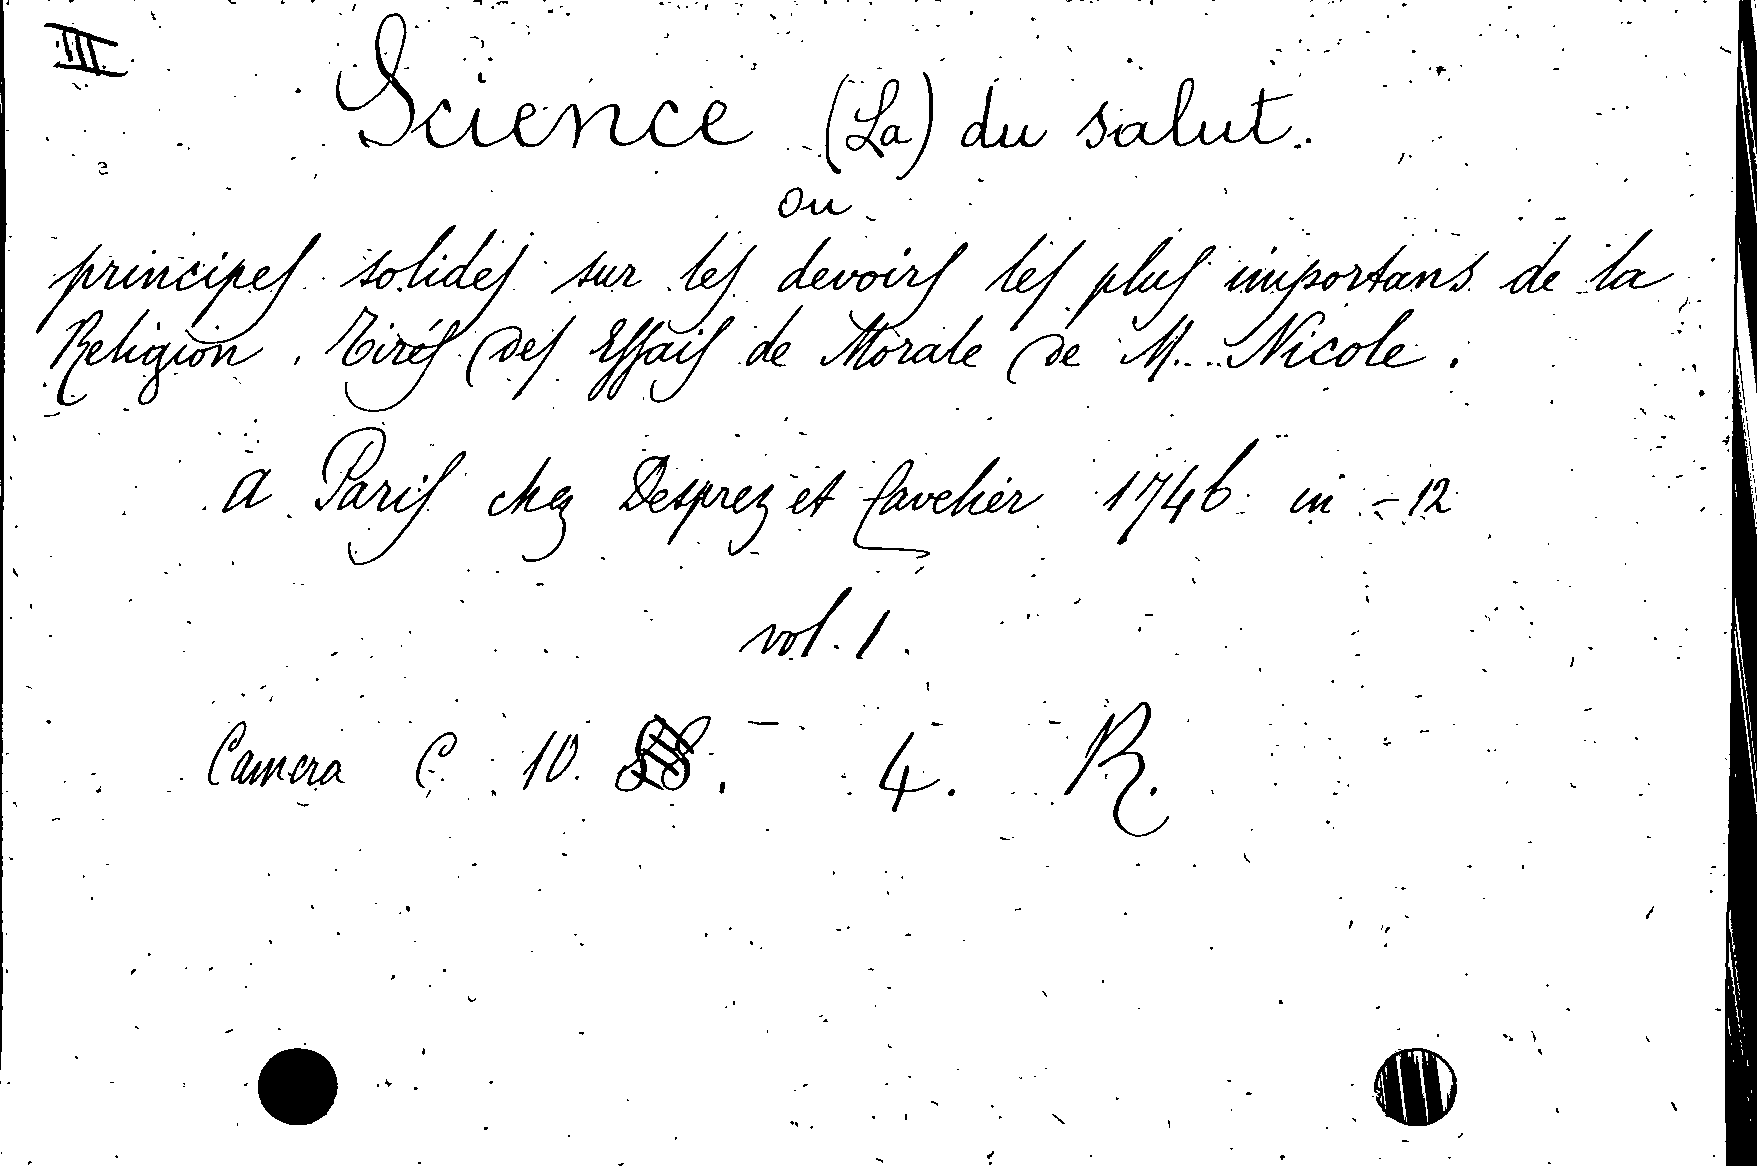 III
Science (La) du salut.
ou
principes solides sur les devoirs les plus importans de la
Religion. Tirés des Essais de Morale de M. Nicole.
a Paris chez Desprez et Cavelier 1746 in-12
vol. 1.
Camera C. 10. 4. R.